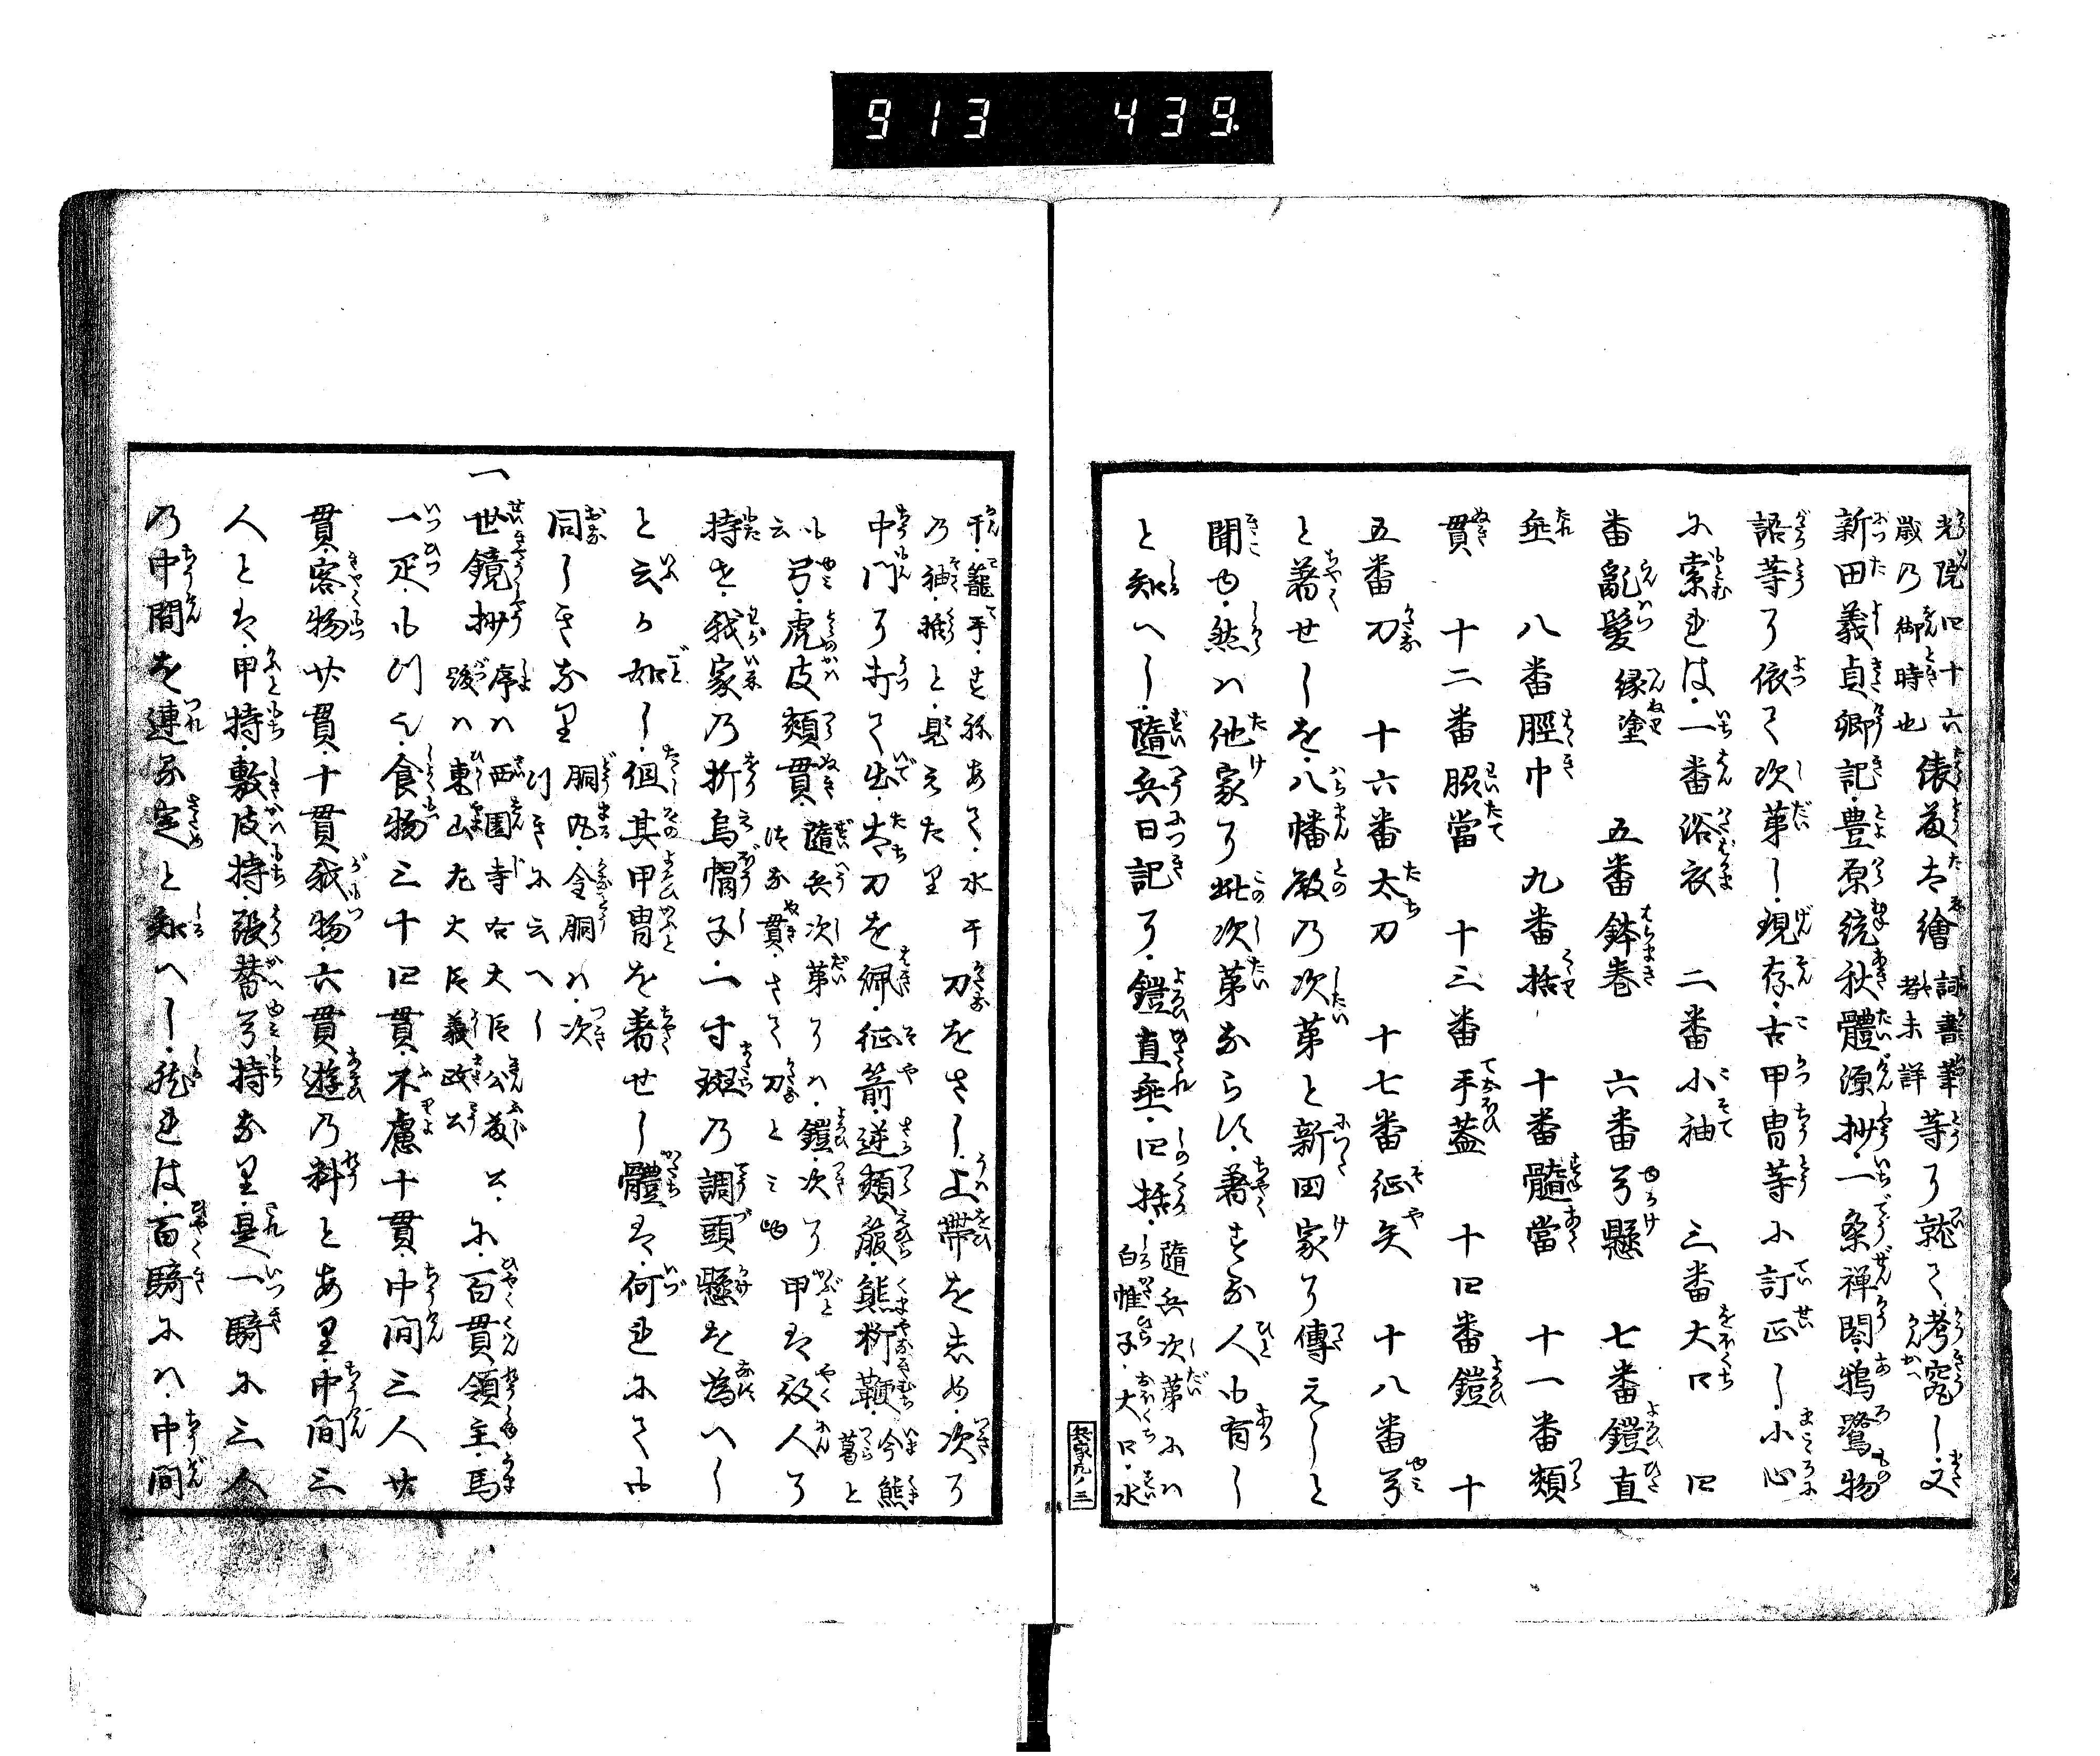 913 439.
光院四十六
歳乃御時也
俵藤太繪
詞書筆
者未詳
等に就て考覈し又
新田義貞卿記・豊原統秋體源抄・一条禅閤・鴉鷺物
語等に依て次第し・現存・古甲冑等に訂正し・小心
に索れは・一番浴衣 二番小袖 三番大口 四
番亂髪 縁塗 五番鉢巻 六番弓懸 七番鎧直
垂 八番脛巾 九番括 十番髓當 十一番頬
貫 十二番脇當 十三番手蓋 十四番鎧 十
五番刀 十六番太刀 十七番征矢 十八番弓
と著せしを・八幡殿の次第と新田家に傳えしと
聞ゆ・然ハ他家に此次第ならす・著する人も有し
と知へし・隨兵日記に・鎧直垂・四括・
隨兵次第にハ
白帷子・大口・水
干・籠手・すねあて・水干
乃袖・括と見えたり
刀をさし・上帯をしめ・次に
中門に打て出・太刀を佩・征箭・逆頬箙・熊柳鞭・
今熊
葛と
も弓・虎皮頬貫・
云
つな貫・さて刀とみゆ
隨兵次第にハ・鎧・次に甲を役人に
持せ・我家乃折烏帽子・一寸斑乃調頭懸を為へし
と云る如し・但其甲冑を著せし體を・何れにても
同しきなり
胴丸・金胴ハ・次
行きに云へし
一世鏡抄
序ハ西園寺右大臣公藤公・
跋ハ東山左大臣義政公
に・百貫領主・馬
一疋・も川之・食物三十四貫・不慮十貫中間三人廿
貫・客物廿貫・十貫我物・六貫遊乃料とあり・中間三
人とを・甲持・敷皮持・張替弓持なり・是一騎に三人
乃中間を連る定と知へし・然れは・百騎にハ・中間